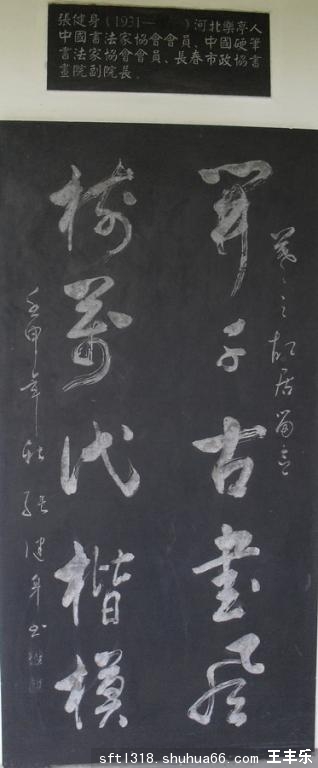 張健身（1931— ）河北樂亭人
中國書法家協會會員、中國硬筆
書法家協會會員、長春市政協書
畫院副院長。
羲之故居留念
開千古書風
樹萬代楷模
壬申年秋張健身書
sftl318.shuhua66.com 王丰乐